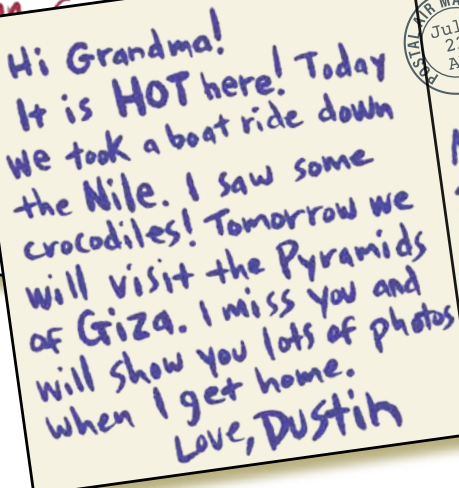 Hi Grandma!
It is HOT here! Today
we took a boat ride down
the Nile. I saw some
crocodiles! Tomorrow we
will visit the Pyramids
of Giza. I miss you and
will show you lots of photos
when I get home.
Love, Dustin
POSTAL AIR MA
Jul